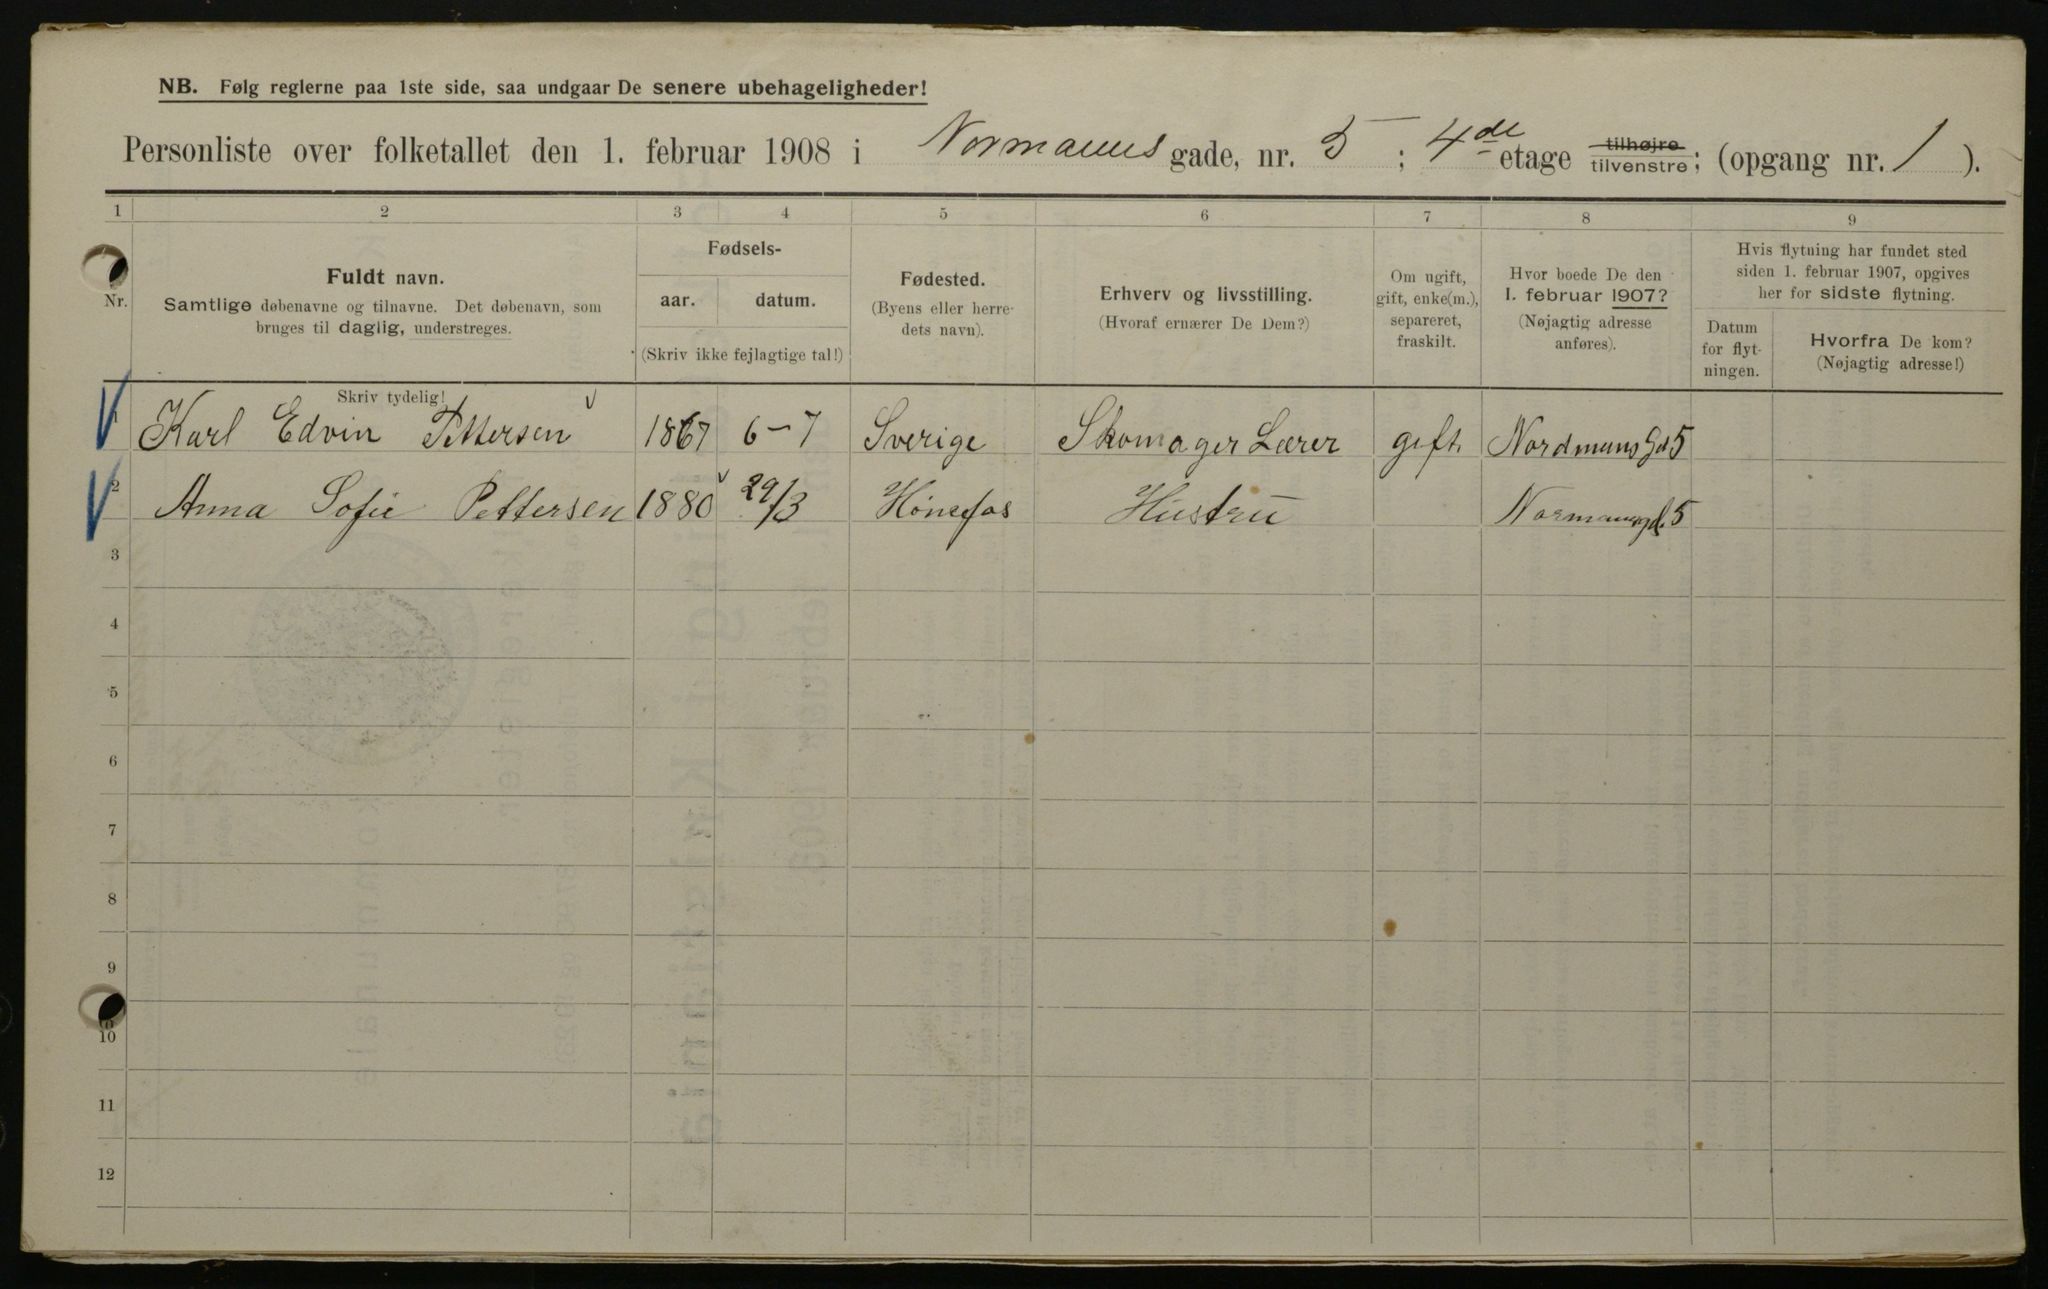 NB. Følg reglerne paa 1ste side, saa undgaar De senere ubehageligheder!
Personliste over folketallet den 1. februar 1908 i Normanns gade, nr. 5 ; 4de etage tilhøjre tilvenstre ; (opgang nr. 1 ).
1 2 3 4 5 6 7 8 9
Nr.
Fuldt navn.
Samtlige døbenavne og tilnavne. Det døbenavn, som
bruges til daglig, understreges.
Skriv tydelig!
Fødsels-
aar. datum.
(Skriv ikke fejlagtige tal!)
Fødested.
(Byens eller herre-
dets navn).
Erhverv og livsstilling.
(Hvoraf ernærer De Dem?)
Om ugift,
gift, enke(m.),
separeret,
fraskilt.
Hvor boede De den
1. februar 1907?
(Nøjagtig adresse
anføres).
Hvis flytning har fundet sted
siden 1. februar 1907, opgives
her for sidste flytning.
Datum
for flyt-
ningen.
Hvorfra De kom?
(Nøjagtig adresse!)
1 Karl Edvin Pettersen 1867 6-7 Sverige Skomager Lærer gift. Nordmans Gd 5
2 Anna Sofie Pettersen 1880 29/3 Hønefos Hustru Normannsgd. 5
3
4
5
6
7
8
9
10
11
12